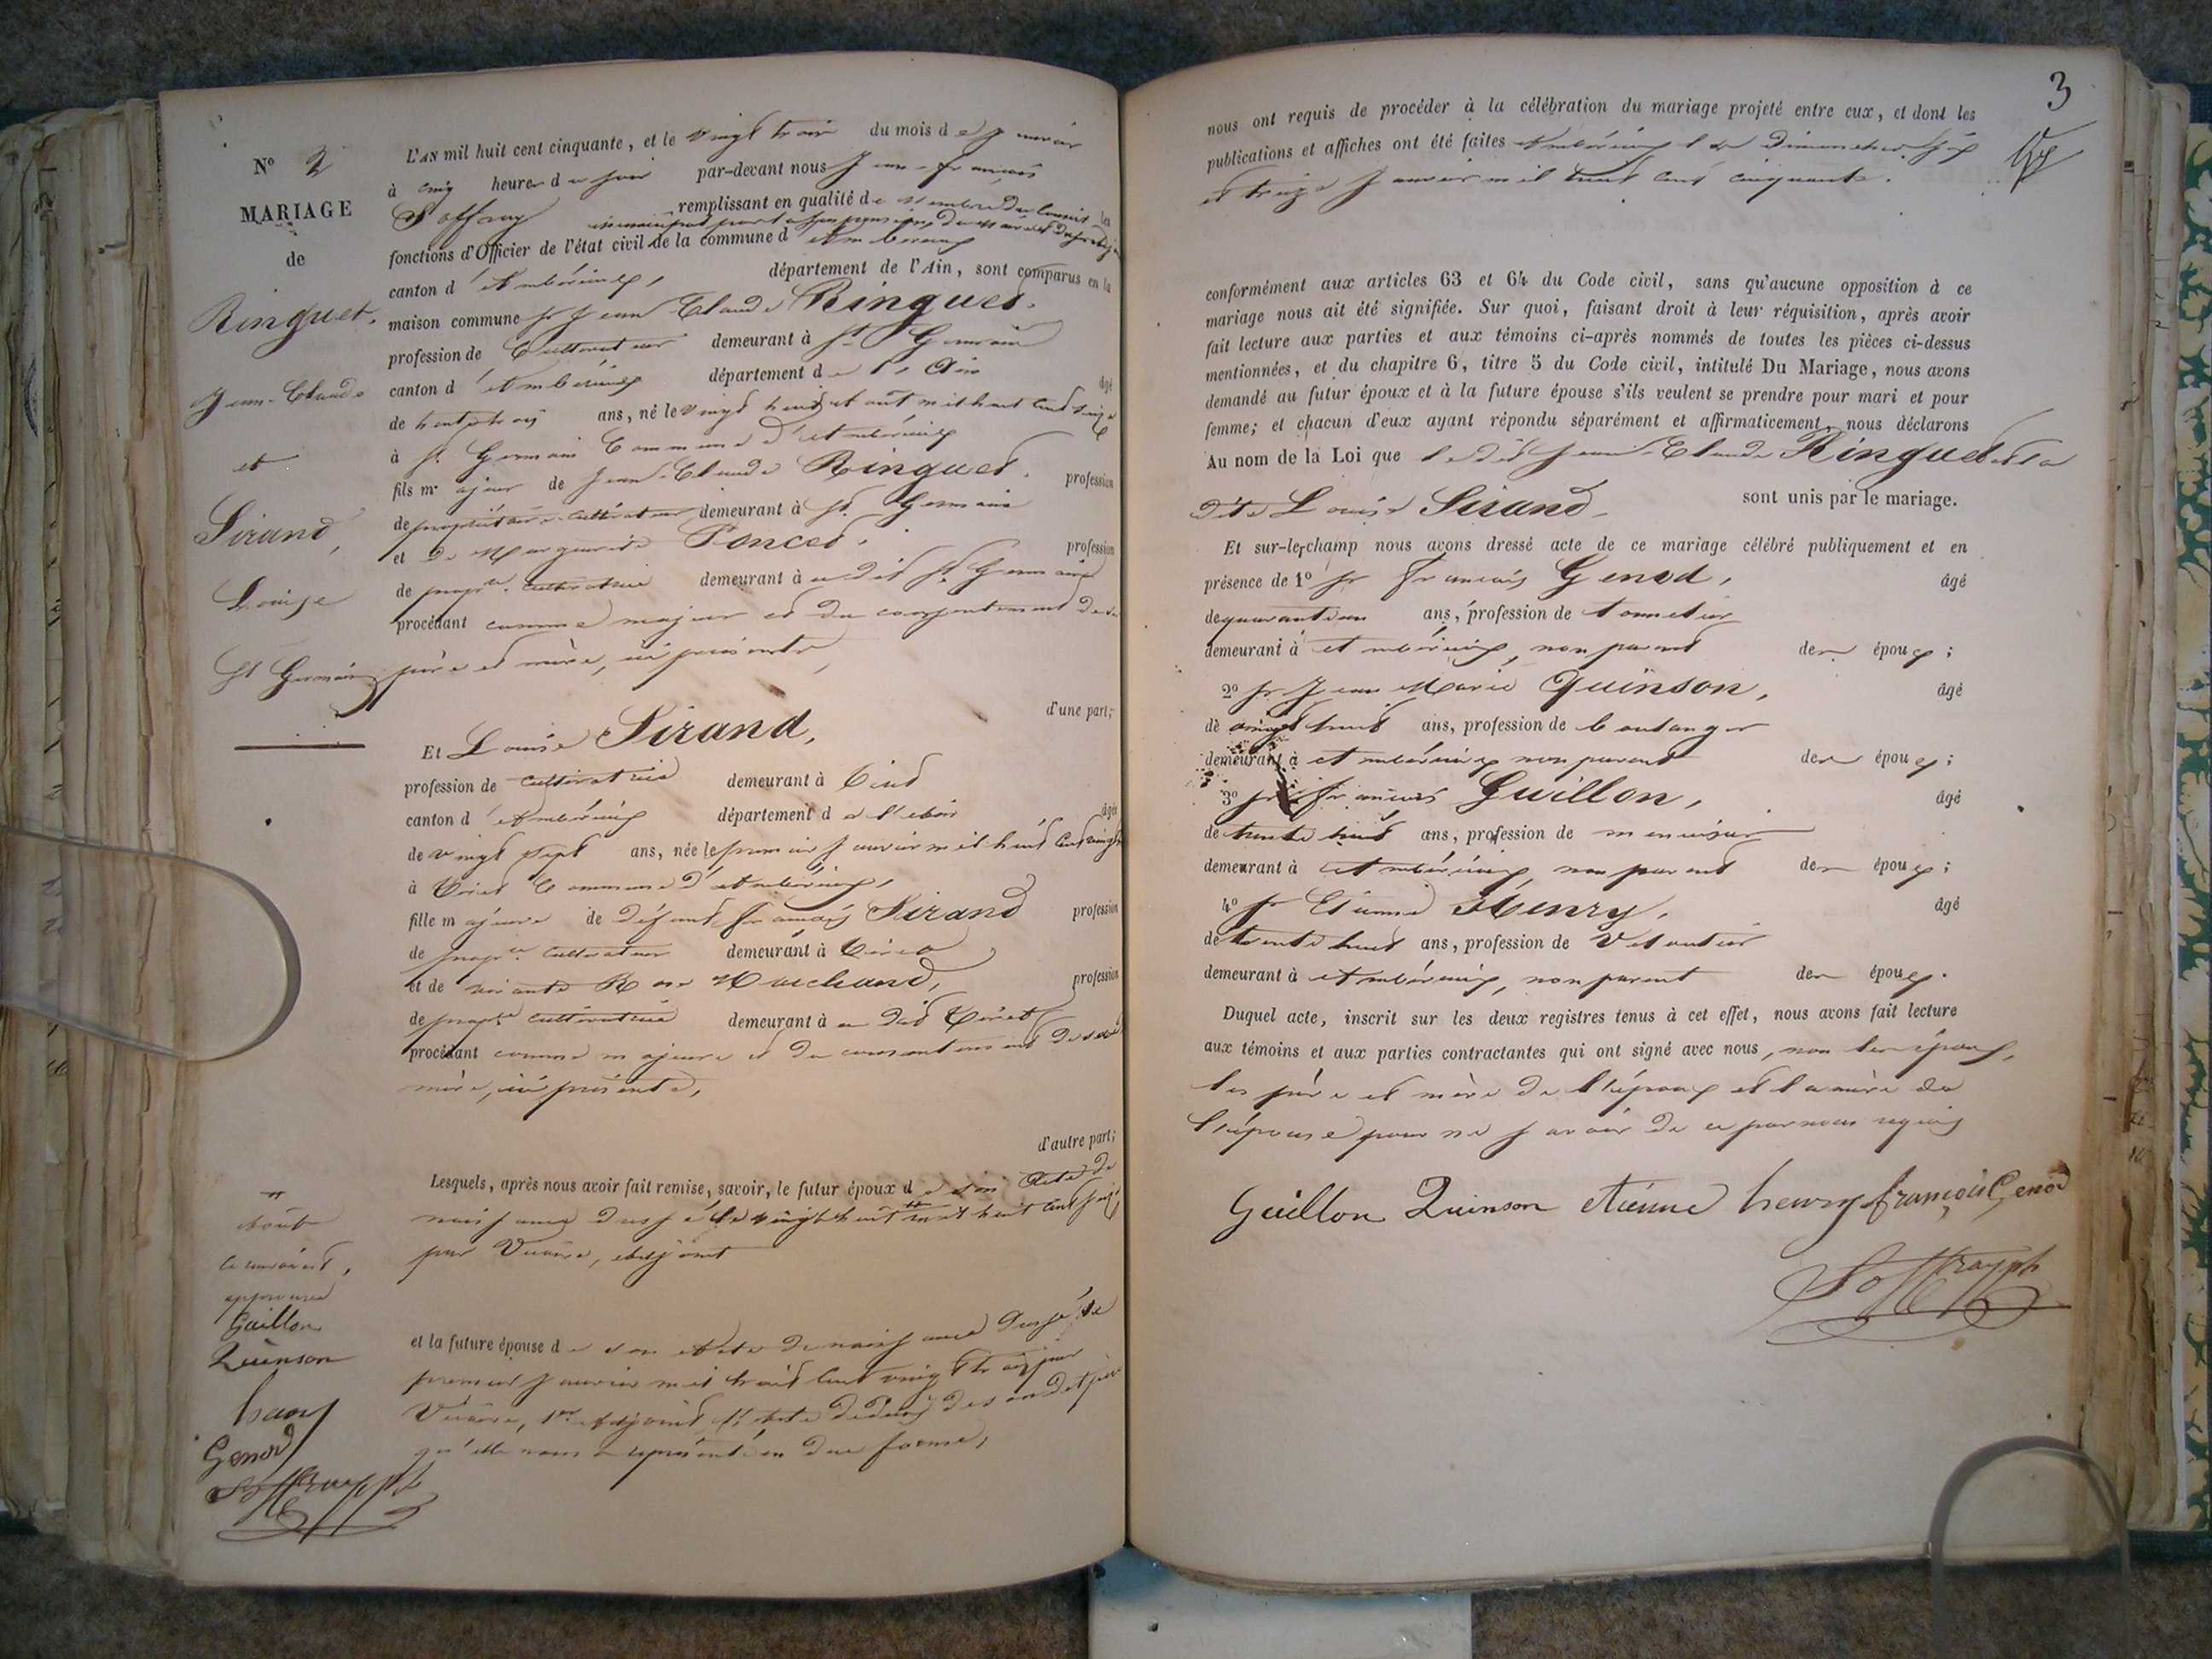 N° 2
MARIAGE
de
Ringuet,
Jean-Claude
et
Sirand,
Louise
St Germain
L'AN mil huit cent cinquante, et le vingt trois du mois de Janvier
à cinq heures du soir par-devant nous Jean-françois
Soffray remplissant en qualité de membre du Conseil les
municipal par du Maire et
fonctions d'Officier de l'état civil de la commune d'Ambérieux
canton d'Ambérieux, département de l'Ain, sont comparus en la
maison commune sr Jean Claude Ringuet.
profession de Cultivateur demeurant à St Germain
canton d'Ambérieux département de l'Ain âgé
de trente trois ans, né le vingt huit août mil huit cent seize
à St Germain Commune d'Ambérieux
fils majeur de Jean-Claude Ringuet. profession
de propriétaire-cultivateur demeurant à St Germain
et de Marguerite Poncet. profession
de propre cultivatrice demeurant à udit St Germain
procédant comme majeur et du consentement de ses
père et mère, ici présents,
d'une part;
Et Louise Sirand,
profession de cultivatrice demeurant à Tiret
canton d'Ambérieux département de l'Ain âgée
de vingt sept ans, née le premier Janvier mil huit cent vingt
à Tiret Commune d'Ambérieux,
fille majeure de défunt françois Sirand profession
de propre cultivateur demeurant à Tiret
et de vivante Rose Marchand, profession
de propre cultivatrice demeurant à udit Tiret
procédant comme majeure et du consentement de sa
mère, ici présente,
d'autre part;
Lesquels, après nous avoir fait remise, savoir, le futur époux de son Acte de
naissance dressé le vingt huit mil huit cent seize
par Vicaire, adjoint
et la future épouse de son Acte de naissance dressé le
premier Janvier mil huit cent vingt trois par
Vicaire, 1er Adjoint l'acte de décès de son dit père
qu'elle nous a représenté en due forme,
août
approuvé
Guillon
Quinson
henry
Genod
Soffray ph
3
nous ont requis de procéder à la célébration du mariage projeté entre eux, et dont les
publications et affiches ont été faites Ambérieux les Dimanches six
et treize Janvier mil huit cent cinquante.
conformément aux articles 63 et 64 du Code civil, sans qu'aucune opposition à ce
mariage nous ait été signifiée. Sur quoi, faisant droit à leur réquisition, après avoir
fait lecture aux parties et aux témoins ci-après nommés de toutes les pièces ci-dessus
mentionnées, et du chapitre 6, titre 5 du Code civil, intitulé Du Mariage, nous avons
demandé au futur époux et à la future épouse s'ils veulent se prendre pour mari et pour
femme; et chacun d'eux ayant répondu séparément et affirmativement, nous déclarons
Au nom de la Loi que le dit Jean-Claude Ringuet et la
dite Louise Sirand sont unis par le mariage.
Et sur-le-champ nous avons dressé acte de ce mariage célébré publiquement et en
présence de 1° sr françois Genod, âgé
de quarante un ans, profession de tonnelier
demeurant à Ambérieux, non parent des époux;
2° sr Jean Marie Quinson, âgé
de vingt huit ans, profession de boulanger
demeurant à Ambérieux non parent des époux;
3° sr françois Guillon, âgé
de trente huit ans, profession de menuisier
demeurant à Ambérieux, non parent des époux;
4° sr Etienne Henry, âgé
de trente huit ans, profession de
demeurant à Ambérieux, non parent des époux.
Duquel acte, inscrit sur les deux registres tenus à cet effet, nous avons fait lecture
aux témoins et aux parties contractantes qui ont signé avec nous, non les époux,
les père et mère de l'époux et la mère de
l'épouse pour ne savoir de ce par nous requis
Guillon Quinson etienne henry françois Genod
Soffray ph